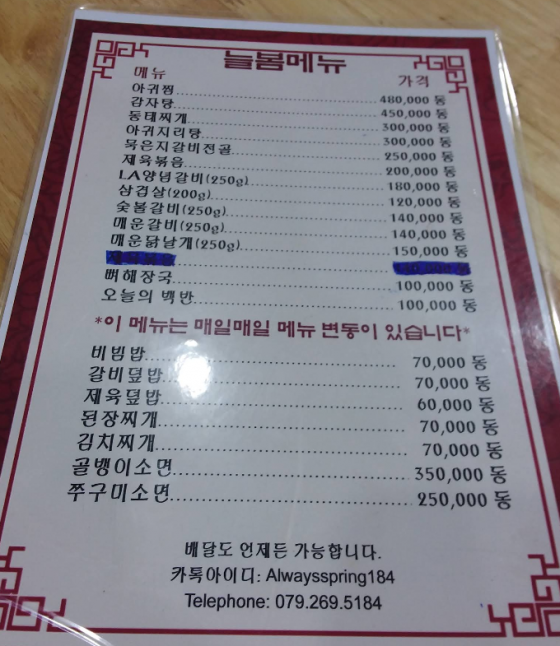 늘봄메뉴
메뉴 가격
아귀찜 480,000 동
감자탕 450,000 동
동태찌개 300,000 동
아귀지리탕 300,000 동
묵은지갈비전골 250,000 동
제육볶음 200,000 동
LA양념갈비(250g) 180,000 동
삼겹살(200g) 120,000 동
숯불갈비(250g) 140,000 동
매운갈비(250g) 140,000 동
매운닭날개(250g) 150,000 동
뼈해장국 100,000 동
오늘의 백반 100,000 동
*이 메뉴는 매일매일 메뉴 변동이 있습니다*
비빔밥 70,000 동
갈비덮밥 70,000 동
제육덮밥 60,000 동
된장찌개 70,000 동
김치찌개 70,000 동
골뱅이소면 350,000 동
쭈구미소면 250,000 동
배달도 언제든 가능합니다.
카톡아이디: Alwaysspring184
Telephone: 079.269.5184